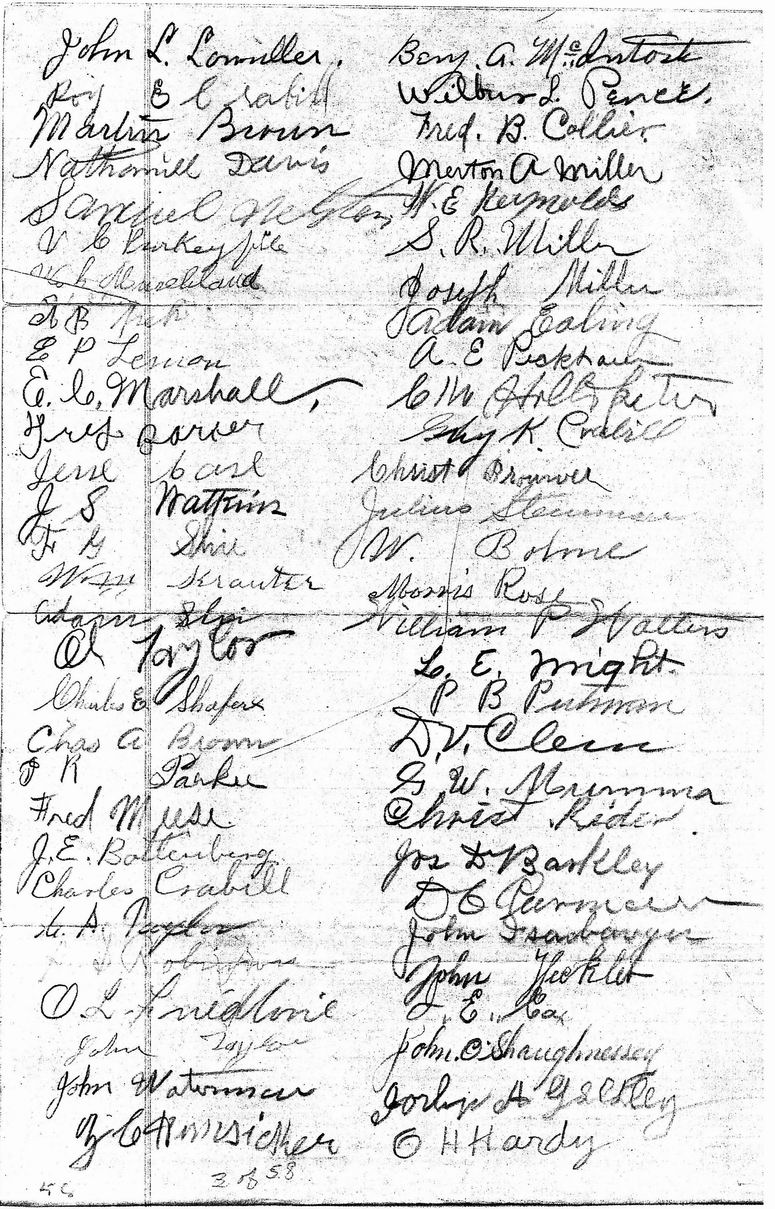 John L. Lomiller.
Roy E Crabill
Martin Brown
Nathaniel Davis
Samuel
V C Purkeypile
A B
E P Lemon
E. C. Marshall,
Fred Parker
Jesse Case
J S Watkins
F G Shie
Wm Krauter
Adam Shie
Al Taylor
Charles E. Shafer
Chas A Brown
J R Parker
Fred Myese
J. E. Bottenberg
Charles Crabill
A. Taylor
Robinson
O L Friedline
John Taylor
John Waterman
C Hunsicker
56
3 of 58
Benj. A. McIntosh
Wilbur L. Pence.
Fred. B. Collier.
Merton A Miller
W. E Reynolds
S. R. Miller
Joseph Miller
Adam Ebling
A. E Peckham
C M Hollopeter
Guy K. Crabill
Christ Brouwer
Julius
W. Bohne
Morris Rose
William P Walters
L. E. Wright.
P B Putman
D. V. Clem
G. W. Mumma
Christ Rider
Jos D Barkley
D C
John
John Heckler
J. E. Cox
John O'Shaughnessey
A
O H Hardy